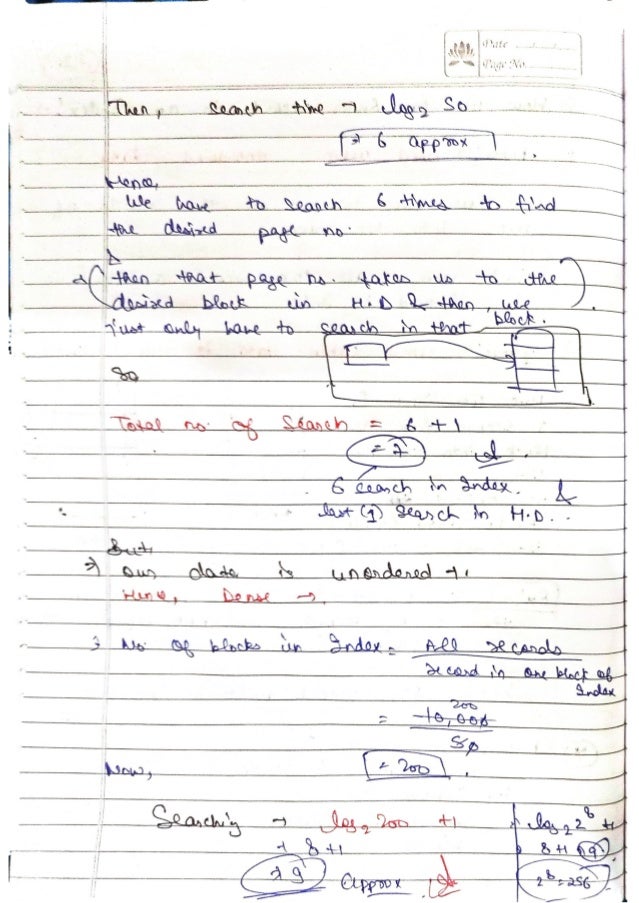 Date
Page No.
Then, search time → log₂ 50
→ 6 approx
Hence,
We have to search 6 times to find
the desired page no.
then that page no. takes us to the
desired block in H.D & then, we
just only have to search in that block.
So
Total no. of Search = 6 + 1
= 7
6 search in Index. &
last (1) search in H.D..
But,
⇒ our data is unordered →.
Hence, Dense →
No of blocks in Index = All records
record in one block of
Index
200
= 10,000
50
= 200
Now,
Searching → log₂ 200 + 1
→ 8 + 1
→ 9 approx
log₂ 2⁸ + 1
8 + 1 9
2⁸ = 256